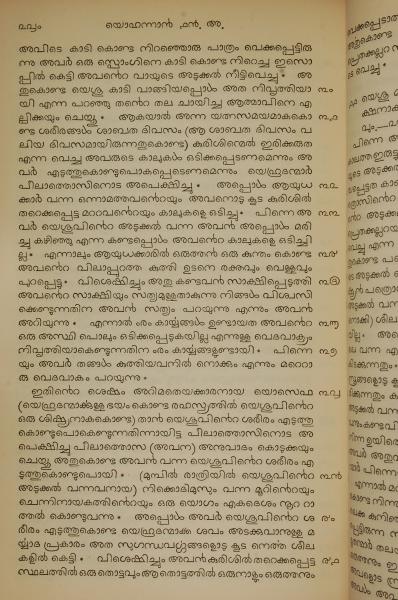 ൨൮൦ യൊഹന്നാൻ ൧൯. അ.
അവിടെ കാടി കൊണ്ട നിറഞ്ഞൊരു പാത്രം വെക്കപ്പെട്ടിരു
ന്നു അവർ ഒരു സ്പൊംഗിനെ കാടി കൊണ്ട നിറെച്ച ഇസൊ
പ്പിൽ കെട്ടി അവൻറെ വായുടെ അടുക്കൽ നീട്ടിവെച്ചു * അ
തുകൊണ്ട യെശു കാടി വാങ്ങിയപ്പൊൾ അത നിവൃത്തിയാ ൩൦
യി എന്ന പറഞ്ഞു തൻറെ തല ചായിച്ച ആത്മാവിനെ എ
ല്പിക്കയും ചെയ്തു * ആകയാൽ അന്ന യത്നസമയമാകകൊ ൩൧
ണ്ട ശരീരങ്ങൾ ശാബത ദിവസം (ആ ശാബത ദിവസം വ
ലിയ ദിവസമായിരുന്നതുകൊണ്ട) കുരിശിന്മെൽ ഇരിക്കരുത
എന്ന വെച്ച അവരുടെ കാലുകൾ ഒടിക്കപ്പെടണമെന്നും അ
വർ എടുത്തുകൊണ്ടുപൊകപ്പെടെണമെന്നും യെഹൂദന്മാർ
പീലാത്തൊസിനൊട അപെക്ഷിച്ചു * അപ്പൊൾ ആയുധ ൩൨
ക്കാർ വന്ന ഒന്നാമത്തവൻറെയും അവനൊടു കൂട കുരിശിൽ
തറെക്കപ്പെട്ട മറ്റവൻറെയും കാലുകളെ ഒടിച്ചു * പിന്നെ അ ൩൩
വർ യെശുവിൻറെ അടുക്കൽ വന്ന അവൻ അപ്പൊൾ മരി
ച്ചു കഴിഞ്ഞു എന്ന കണ്ടപ്പൊൾ അവൻറെ കാലുകളെ ഒടിച്ചി
ല്ല * എന്നാലും ആയുധക്കാരിൽ ഒരുത്തൻ ഒരു കുന്തം കൊണ്ട ൩൪
അവൻറെ വിലാപ്പുറത്ത കുത്തി ഉടനെ രക്തവും വെള്ളവും
പുറപ്പെട്ടു * വിശെഷിച്ചും അതു കണ്ടവൻ സാക്ഷിപ്പെടുത്തി ൩൫
അവൻറെ സാക്ഷിയും സത്യമുള്ളതാകുന്നു നിങ്ങൾ വിശ്വസി
ക്കെണ്ടുന്നതിന അവൻ സത്യം പറയുന്നു എന്നും അവൻ
അറിയുന്നു * എന്നാൽ ൟ കാൎയ്യങ്ങൾ ഉണ്ടായത അവൻറെ ൩൬
ഒരു അസ്ഥി പൊലും ഒടിക്കപ്പെടുകയില്ല എന്നുള്ള വെദവാക്യം
നിവൃത്തിയാകെണ്ടുന്നതിന ൟ കാൎയ്യങ്ങളുണ്ടായി * പിന്നെ ൩൭
യും അവർ തങ്ങൾ കുത്തിയവനിൽ നൊക്കും എന്നും മറ്റൊ
രു വെദവാകം പറയുന്നു *
ഇതിൻറെ ശെഷം അറിമതെയക്കാരനായ യൊസെഫ ൩൮
(യെഹൂദന്മാൎക്കുള്ള ഭയം കൊണ്ട രഹസ്യത്തിൽ യെശുവിൻറെ
ഒരു ശിഷ്യനാകകൊണ്ട) താൻ യെശുവിൻറെ ശരീരം എടുത്തു
കൊണ്ടുപൊകെണ്ടുന്നതിന്നായിട്ട പീലാത്തൊസിനൊട അ
പെക്ഷിച്ചു പീലാത്തൊസ (അവന) അനുവാദം കൊടുക്കയും
ചെയ്തു അതുകൊണ്ട അവൻ വന്ന യെശുവിൻറെ ശരീരം എ
ടുത്തുകൊണ്ടുപൊയി * (മുമ്പിൽ രാത്രിയിൽ യെശുവിൻറെ ൩൯
അടുക്കൽ വന്നവനായ) നിക്കൊദിമുസും വന്ന മൂറിൻറെയും
ചെന്നിനായകത്തിൻറെയും ഒരു യൊഗം എകദെശം നൂറ റാ
ത്തൽ കൊണ്ടുവന്നു * അപ്പൊൾ അവർ യെശുവിൻറെ ശ ൪൦
രീരം എടുത്തുകൊണ്ട യെഹൂദന്മാൎക്ക ശവം അടക്കുവാനുള്ള മ
ൎയ്യാദ പ്രകാരം അത സുഗന്ധവൎഗ്ഗങ്ങളൊടു കൂട നെൎത്ത ശീല
കളിൽ കെട്ടി * വിശെഷിച്ചും അവൻ കുരിശിൽ തറെക്കപ്പെട്ട ൪൧
സ്ഥലത്തിൽ ഒരു തൊട്ടവും ആ തൊട്ടത്തിൽ ഒരുനാളും ഒരുത്തനും